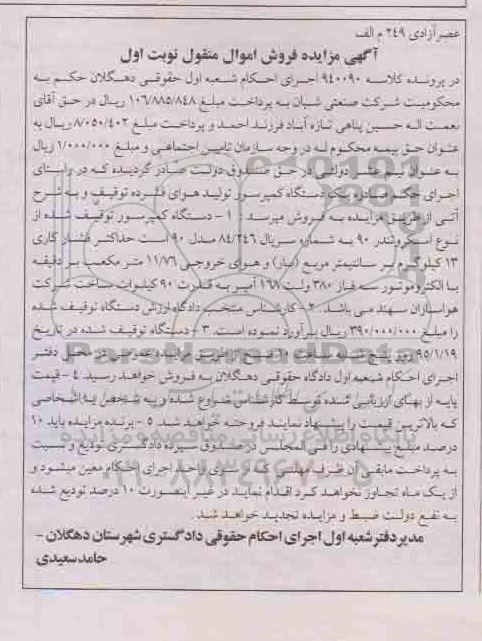 عصر آزادی ۲۴۹ م الف
آگهی مزایده فروش اموال منقول نوبت اول
در پرونده کلاسه ۹۴۰۰۹۰ اجرای احکام شعبه اول حقوقی دهگلان حکم به
محکومیت شرکت صنعتی شبان به پرداخت مبلغ ۱۰۶/۸۸۵/۸۴۸ ریال در حق آقای
نعمت اله حسین پناهی تازه آباد فرزند احمد و پرداخت مبلغ ۸/۰۵۰/۴۰۲ ریال به
عنوان حق بیمه محکوم له در وجه سازمان تامین اجتماعی و مبلغ ۱/۰۰۰/۰۰۰ ریال
به عنوان نیم عشر دولتی در حق صندوق دولت صادر گردیده که در راستای
اجرای حکم صادره یک دستگاه کمپرسور تولید هوای فشرده توقیف و به شرح
آتی از طریق مزایده به فروش میرسد: ۱ - دستگاه کمپرسور توقیف شده از
نوع اسکروتندر ۹۰ به شماره سریال ۸۴/۲۴۶ مدل ۹۰ است حداکثر فشار کاری
۱۳ کیلوگرم بر سانتیمتر مربع (بار) و هوای خروجی ۱۱/۷۶ متر مکعب بر دقیقه
با الکتروموتور سه فاز ۳۸۰ ولت ۱۶۸ آمپر به قدرت ۹۰ کیلووات ساخت شرکت
هواسازان سهند می باشد. ۲ - کارشناس منتخب دادگاه ارزش دستگاه توقیف شده
را مبلغ ۳۹۰/۰۰۰/۰۰۰ ریال برآورد نموده است. ۳ - دستگاه توقیف شده در تاریخ
۹۵/۱/۱۹ روز پنج شنبه ساعت ۱۰ صبح از طریق مزایده عمومی در محل دفتر
اجرای احکام شعبه اول دادگاه حقوقی دهگلان به فروش خواهد رسید. ۴ - قیمت
پایه از بهای ارزیابی شده توسط کارشناس شروع شده و به شخص یا اشخاصی
که بالاترین قیمت را پیشنهاد نمایند فروخته خواهد شد. ۵ - برنده مزایده باید ۱۰
درصد مبلغ پیشنهادی را فی المجلس در صندوق سپرده دادگستری تودیع و نسبت
به پرداخت مابقی آن ظرف مهلتی که از سوی واحد اجرای احکام معین میشود و
از یک ماه تجاوز نخواهد کرد اقدام نماید در غیر اینصورت ۱۰ درصد تودیع شده
به نفع دولت ضبط و مزایده تجدید خواهد شد.
مدیر دفتر شعبه اول اجرای احکام حقوقی دادگستری شهرستان دهگلان -
حامد سعیدی